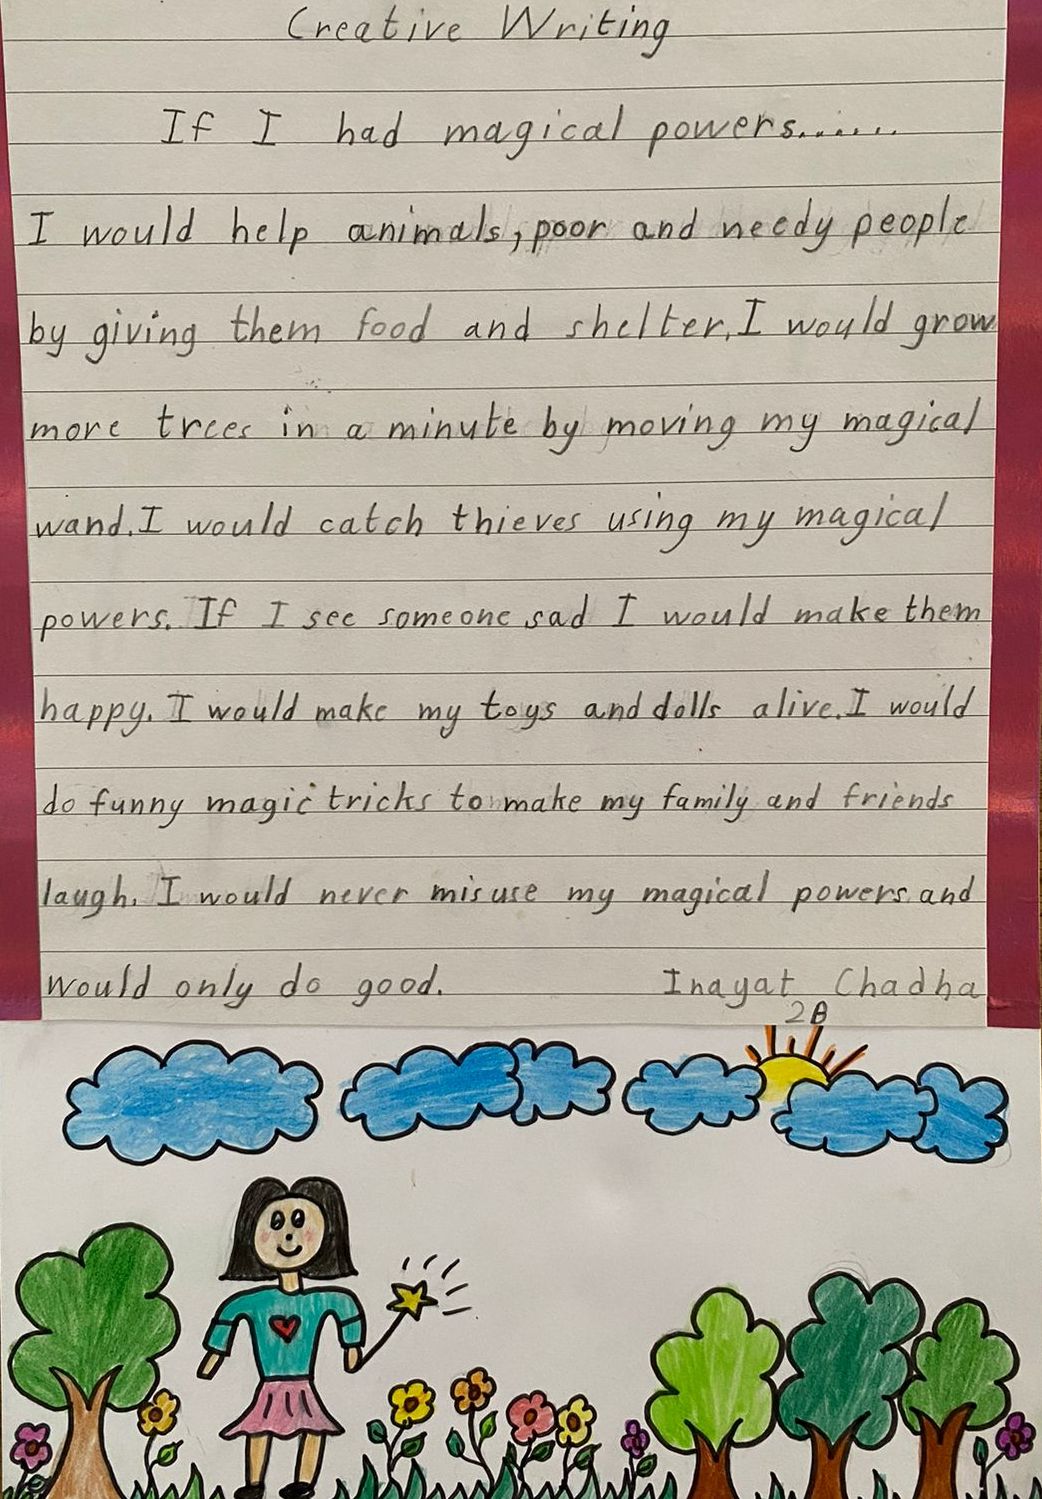 Creative Writing
If I had magical powers.......
I would help animals, poor and needy people
by giving them food and shelter. I would grow
more trees in a minute by moving my magical
wand. I would catch thieves using my magical
powers. If I see someone sad I would make them
happy. I would make my toys and dolls alive. I would
do funny magic tricks to make my family and friends
laugh. I would never misuse my magical powers and
would only do good. Inayat Chadha
2B